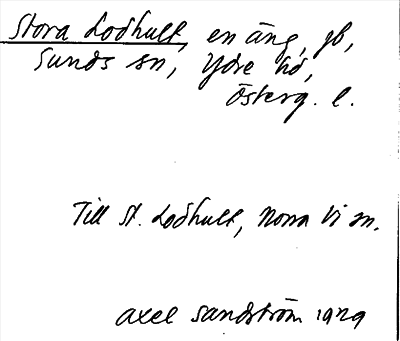 Stora Lodhult, en äng, jb,
Sunds sn, Ydre hd,
Österg. l.
Till St. Lodhult, Norra Vi sn.
Axel Sandström 1929